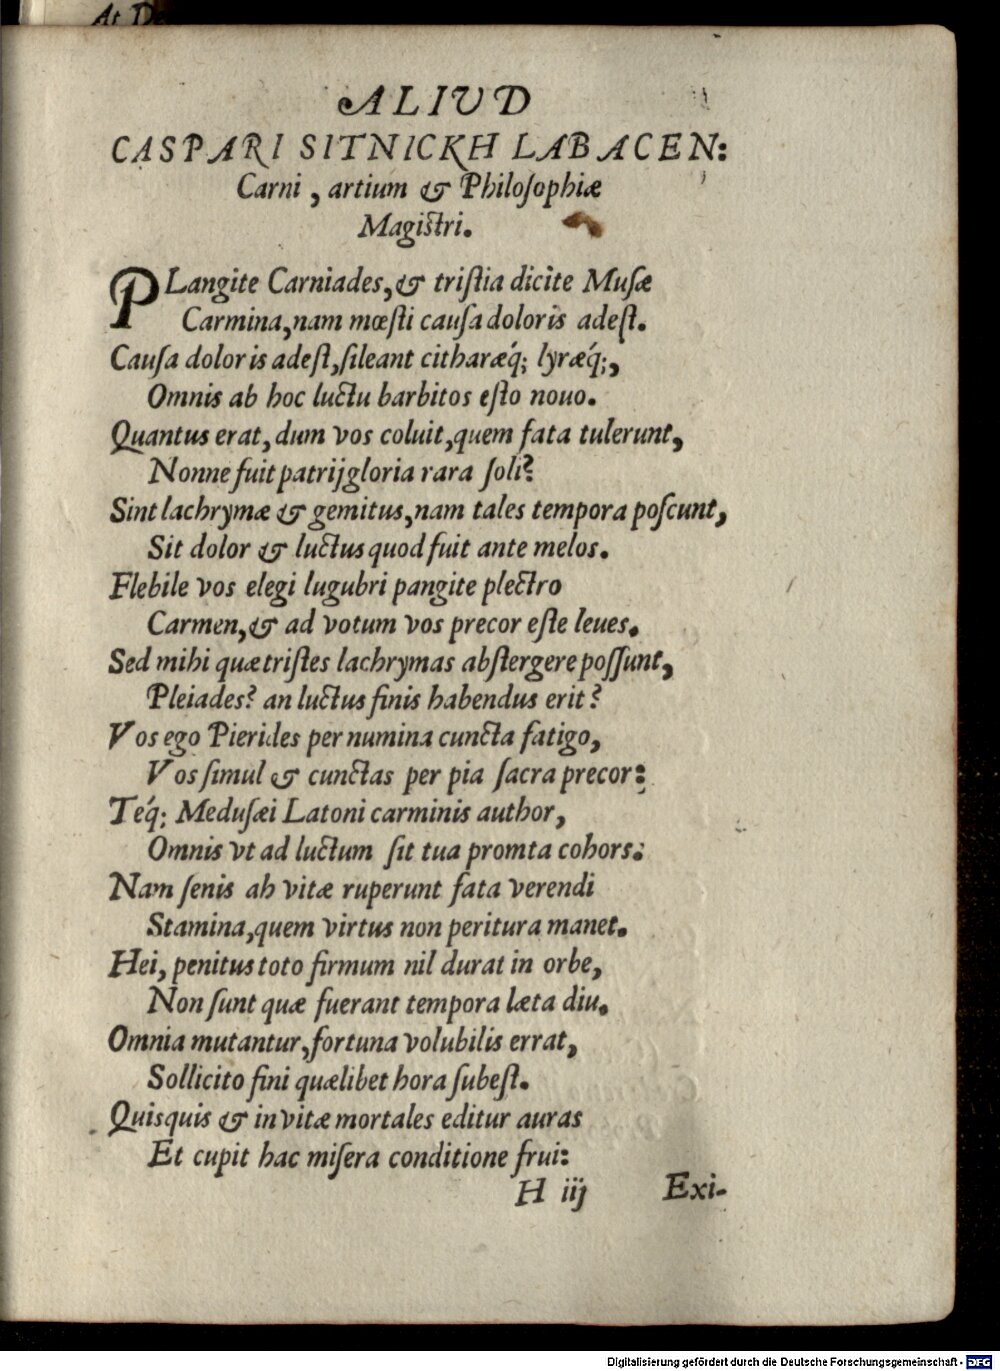 At De
ALIVD
CASPARI SITNICKH LABACEN:
Carni, artium & Philoſophiæ
Magiſtri.
PLangite Carniades, & triſtia dicite Muſæ
Carmina, nam mœſti cauſa doloris adeſt.
Cauſa doloris adeſt, ſileant citharæq́; lyræq́;,
Omnis ab hoc luctu barbitos eſto nouo.
Quantus erat, dum vos coluit, quem fata tulerunt,
Nonne fuit patrij gloria rara ſoli?
Sint lachrymæ & gemitus, nam tales tempora poſcunt,
Sit dolor & luctus quod fuit ante melos.
Flebile vos elegi lugubri pangite plectro
Carmen, & ad votum vos precor eſte leues.
Sed mihi quæ triſtes lachrymas abſtergere poſſunt,
Pleiades? an luctus finis habendus erit?
Vos ego Pierides per numina cuncta fatigo,
Vos ſimul & cunctas per pia ſacra precor:
Teq́; Meduſæi Latoni carminis author,
Omnis vt ad luctum ſit tua promta cohors:
Nam ſenis ah vitæ ruperunt fata verendi
Stamina, quem virtus non peritura manet.
Hei, penitus toto firmum nil durat in orbe,
Non ſunt quæ fuerant tempora læta diu.
Omnia mutantur, fortuna volubilis errat,
Sollicito fini quælibet hora ſubeſt.
Quisquis & in vitæ mortales editur auras
Et cupit hac miſera conditione frui:
H iij Exi-
Digitalisierung gefördert durch die Deutsche Forschungsgemeinschaft - DFG